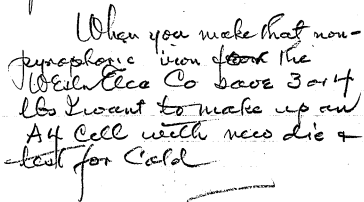 When you make that non-
pyrophoric iron for the
Westn Elec Co save 3 or 4
lbs I want to make up an
A4 Cell with new die +
test for Cold